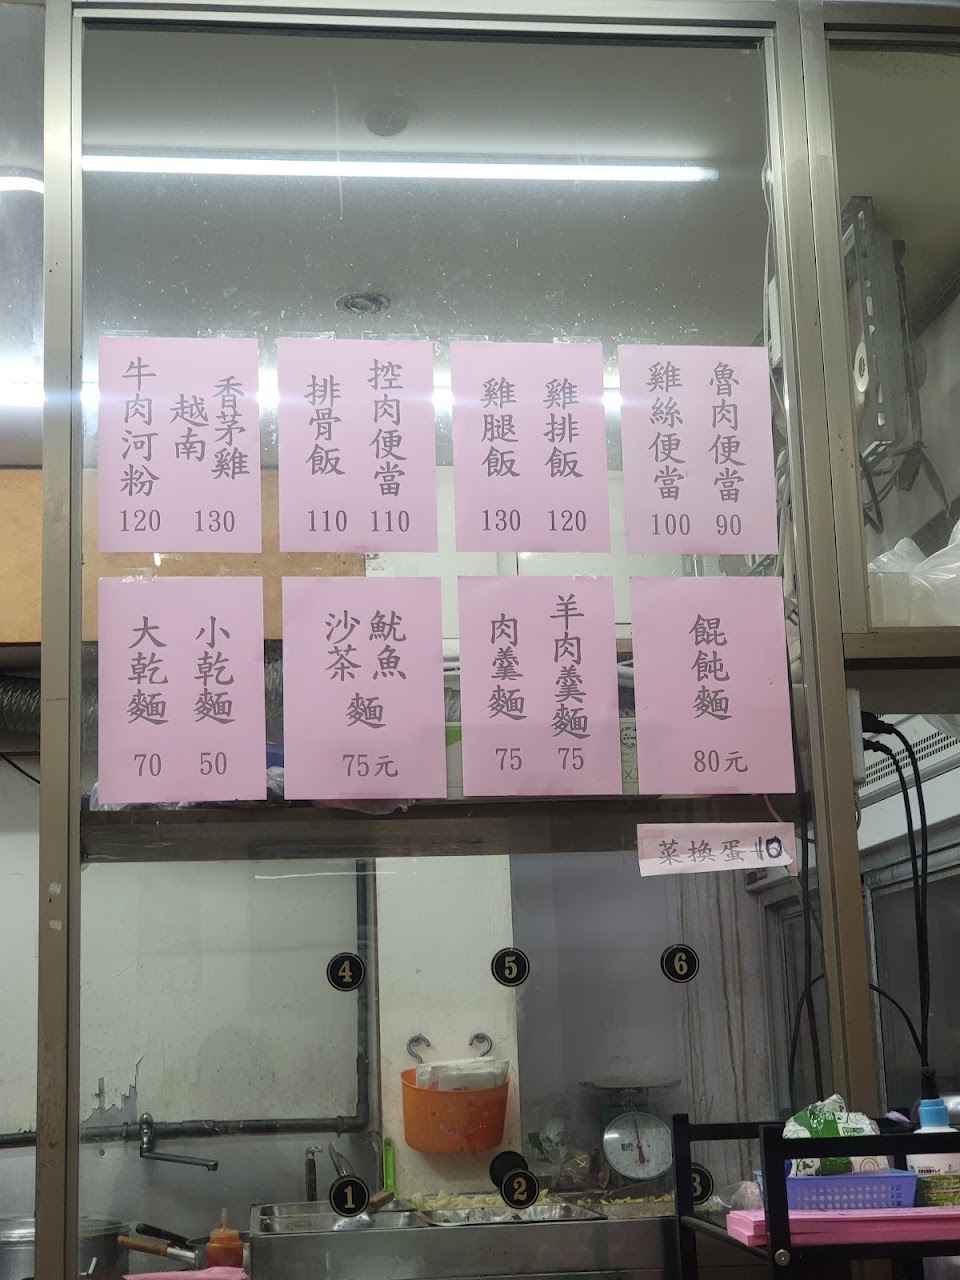 魯肉便當
90
雞絲便當
100
雞排飯
120
雞腿飯
130
控肉便當
110
排骨飯
110
香茅雞
越南
130
牛肉河粉
120
餛飩麵
80元
羊肉羹麵
75
肉羹麵
75
魷魚
沙茶
麵
75元
小乾麵
50
大乾麵
70
菜換蛋+10
4
5
6
1
2
3